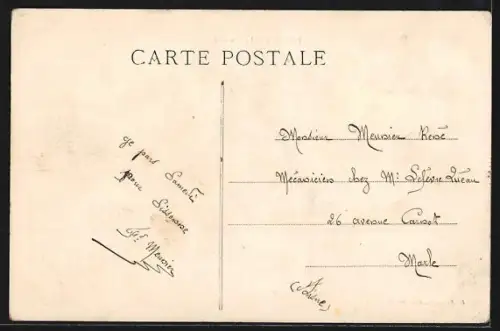 CARTE POSTALE
Je pars Samedi
pour Sissonne
Meunier
Monsieur Meunier René
Mécanicien chez Mr Lefèvre
26 avenue Carnot
Marle
(Aisne)